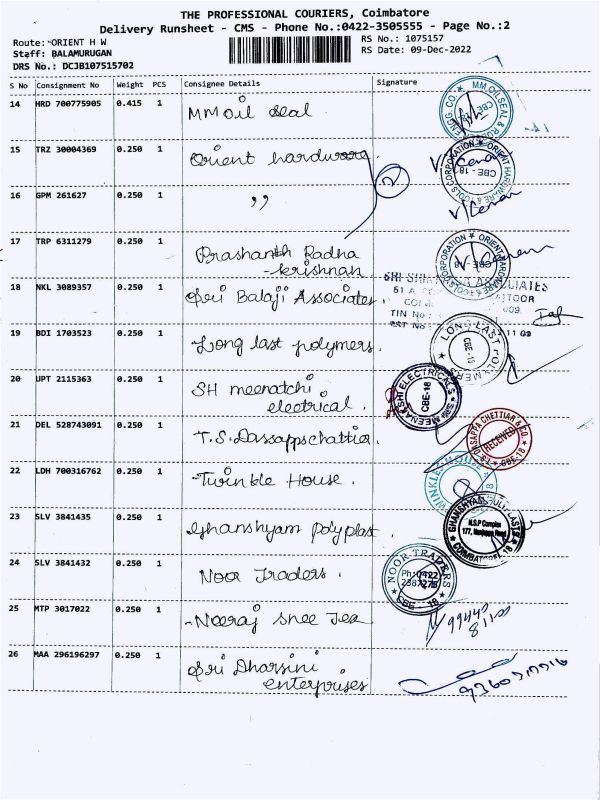 THE PROFESSIONAL COURIERS, Coimbatore
Delivery Runsheet - CMS - Phone No.:0422-3505555 - Page No.:2
Route: ORIENT H W
RS No.: 1075157
Staff: BALAMURUGAN
RS Date: 09-Dec-2022
DRS No.: DCJB107515702
S No Consignment No Weight PCS Consignee Details Signature
14 HRD 700775905 0.415 1 MM oil seal
15 TRZ 30004369 0.250 1 Orient hardware
16 GPM 261627 0.250 1 ,,
17 TRP 6311279 0.250 1 Prashanth Radha
-krishnan
18 NKL 3089357 0.250 1 Sri Balaji Associates
19 BDI 1703523 1 Long last polymers.
20 UPT 2115363 0.250 1 SH meenatchi
electrical.
21 DEL 528743091 0.250 1 T.S. Dassappschattia.
22 LDH 700316762 0.250 1 Twinkle House.
23 SLV 3841435 0.250 1 Ghanshyam polyplast
24 SLV 3841432 0.250 1 Noor Traders.
25 MTP 3017022 0.250 1 Neeraj shree Tex
26 MAA 296196297 0.250 1 Sri Dharsini
enterprises
MM OIL SEAL &
ENGG. CO.
CBE
ORIENT HARDWARE & TOOLS CORPORATION
CBE - 18
V. 
ORIENT HARDWARE & TOOLS CORPORATION
CBE - 18
ASSOCIATES
TIN No :
LONG LAST POLYMERS
CBE - 18
SRI MEENAKSHI ELECTRICALS
CBE-18
DASAPPA CHETTIAR & CO.
RECEIVED
CBE-18
GHANSHYAM POLYPLASTS
N.S.P Complex
COIMBATORE 18
NOOR TRADERS
Ph:0422
2387275
CBE - 18